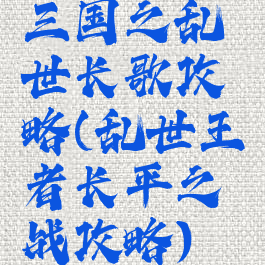 三国之乱
世长歌攻
略(乱世王
者长平之
战攻略)